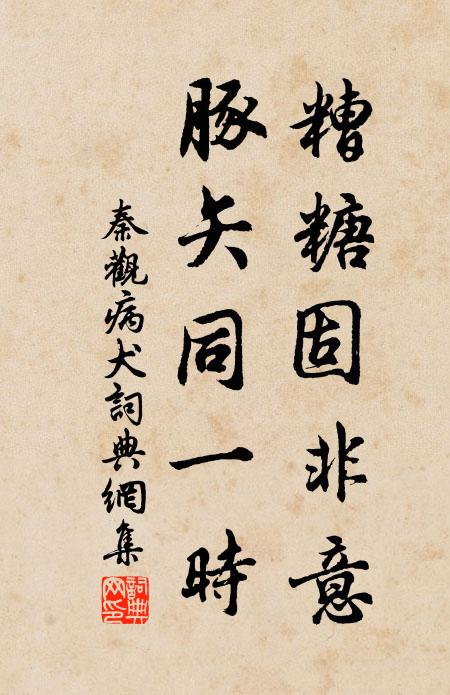 糟糖固非意
豚矢同一時
秦觀病犬詞典網集
詞典